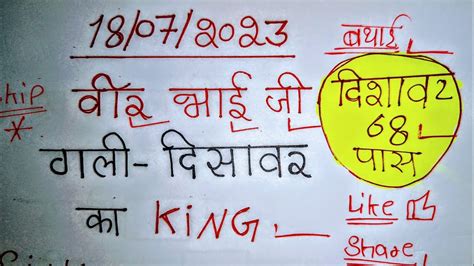 18/07/2023
बधाई
ship
वीर भाई जी
दिशावर
68
पास
गली-दिसावर
का KING
Like
Share